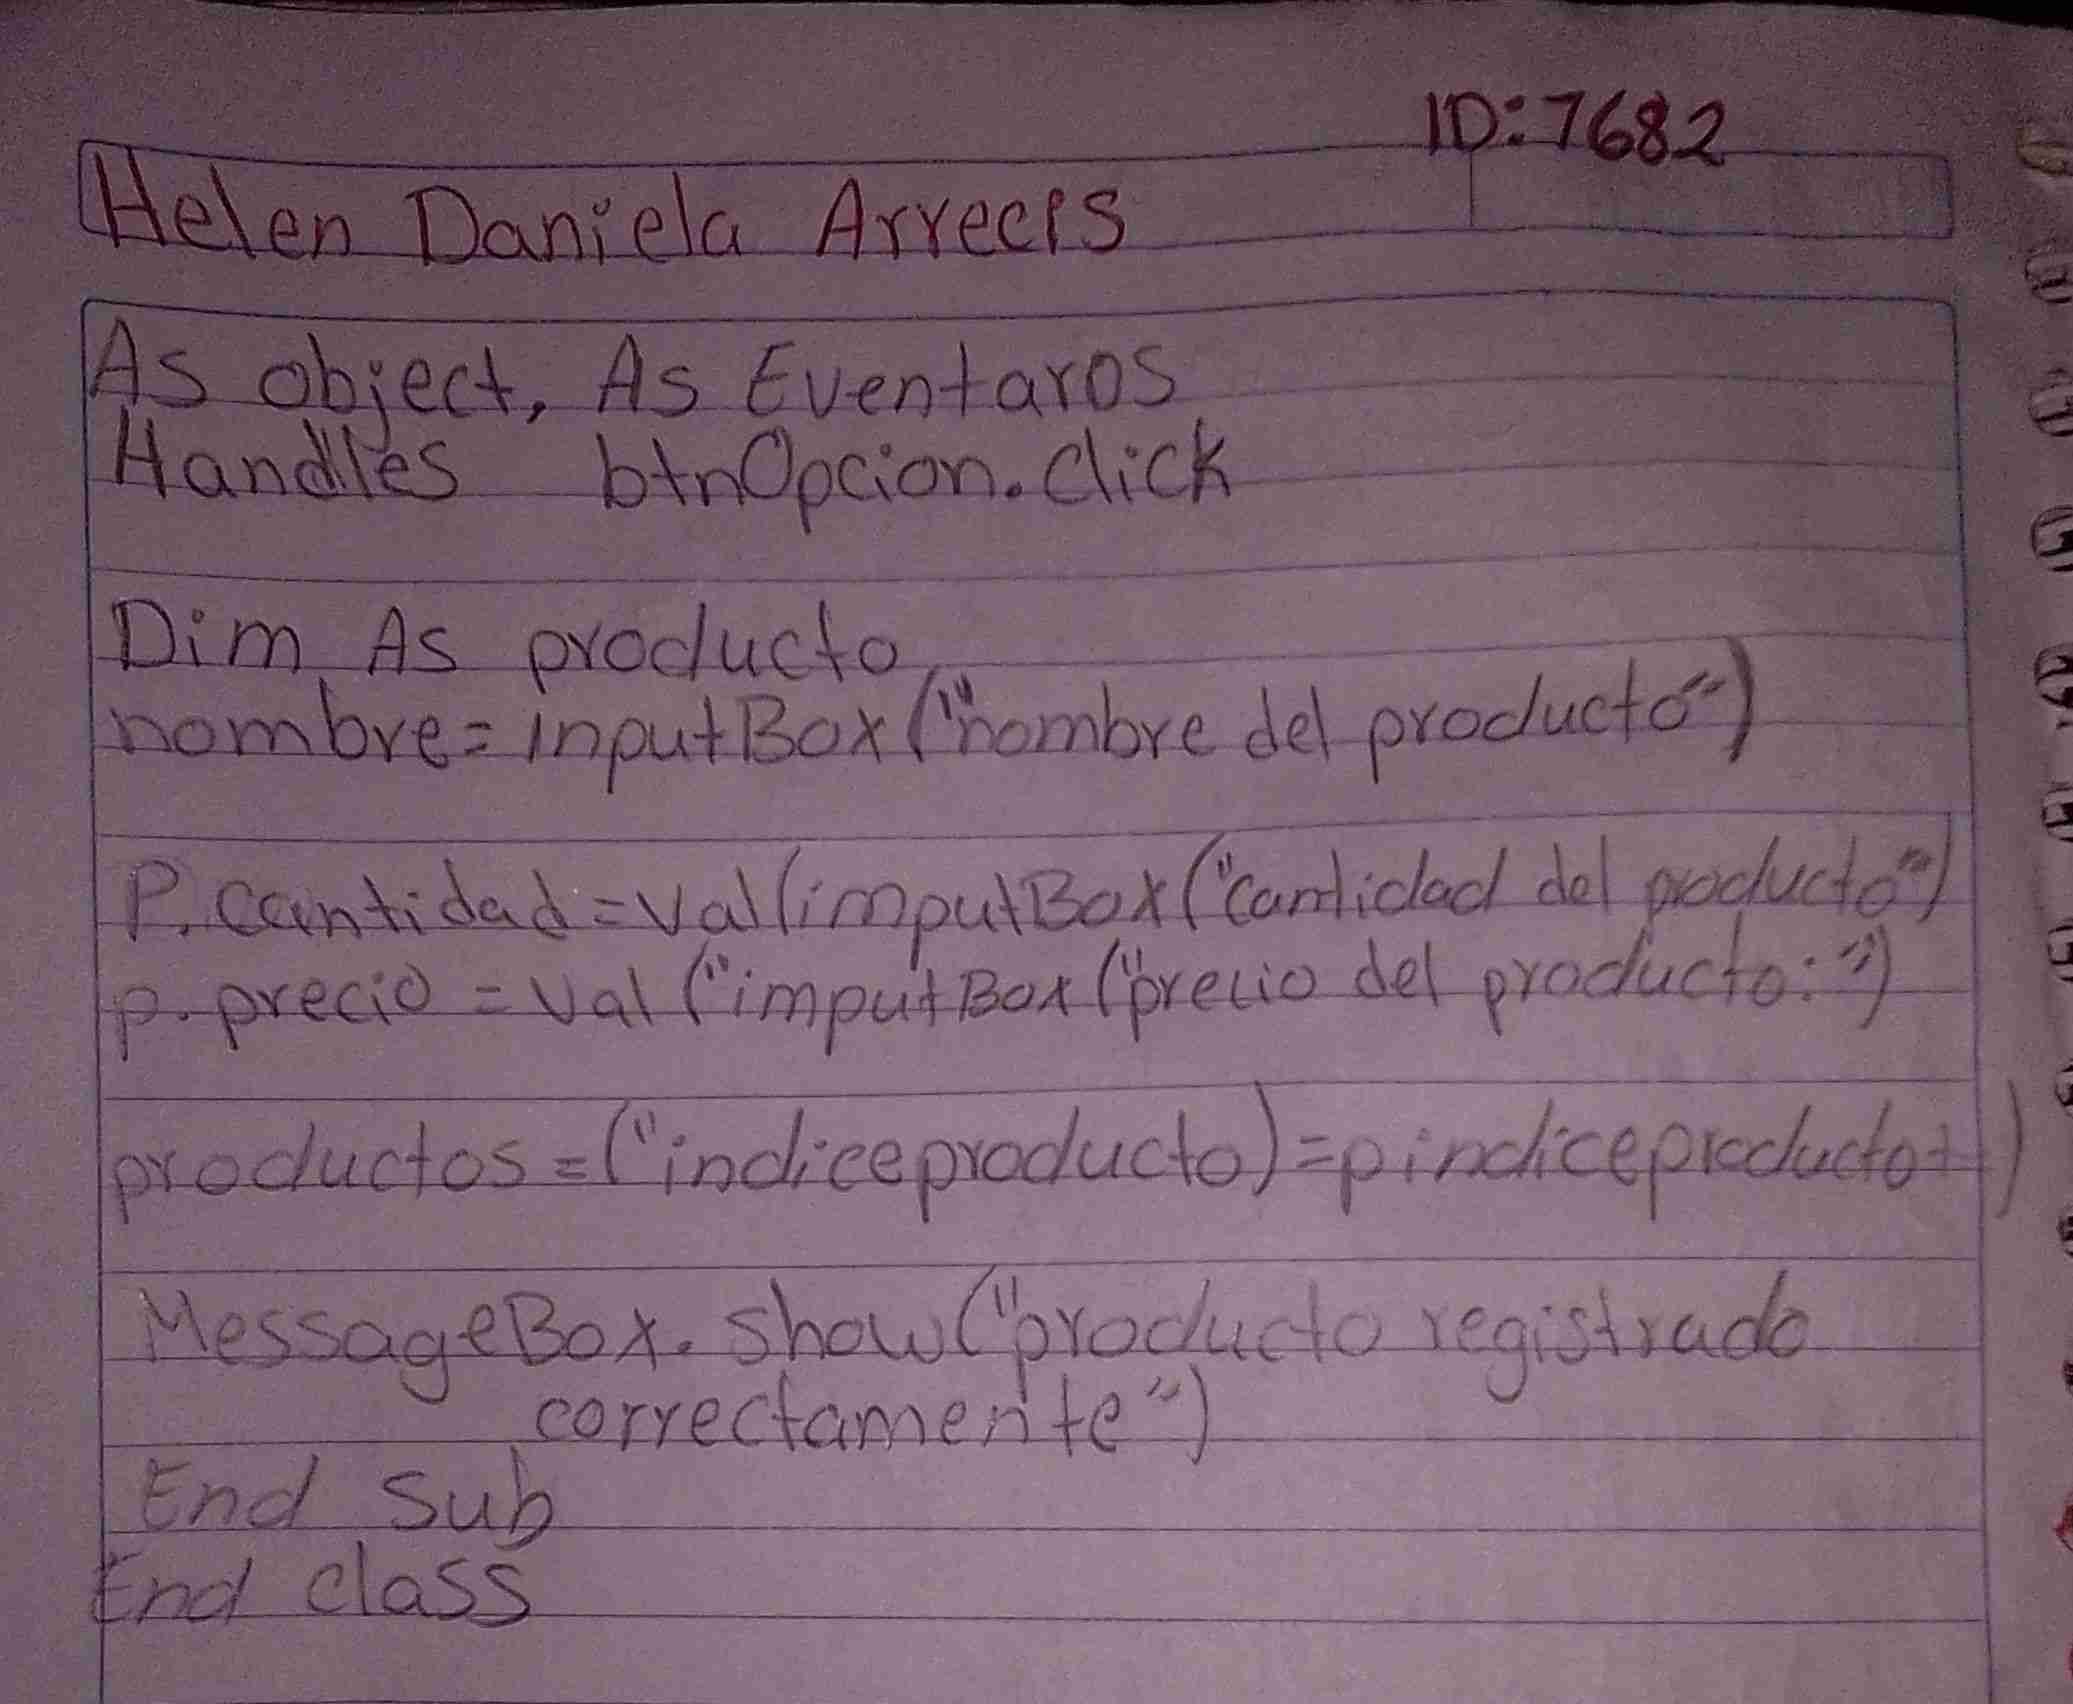 ID:7682
Helen Daniela Arrecis
As object, As Eventaros
Handles btnOpcion.click
Dim As producto
nombre=inputBox("nombre del producto")
P.Cantidad=Val(imputBox("Cantidad del producto")
p.precio=Val("imputBox("precio del producto:")
productos=("indiceproducto)=pindiceproducto+)
MessageBox.show("producto registrado
correctamente")
End Sub
End class